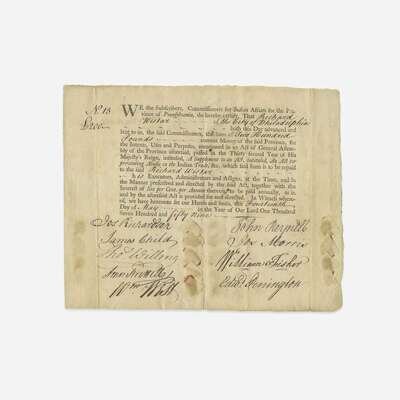 No 18
WE the Subscribers, Commissioners for Indian Affairs for the Pro-
vince of Pennsylvania, do hereby certify, That Richard
Wistar of the City of Philadelphia
hath this Day advanced and
lent to us, the said Commissioners, the Sum of Two Hundred
Pounds current Money of the said Province, for
the Interest, Uses and Purposes, mentioned in an Act of General Assem-
bly of the Province aforesaid, passed in the Thirty-second Year of His
Majesty's Reign, intituled, A Supplement to an Act, intituled, An Act for
preventing Abuses in the Indian Trade, &c. which said Sum is to be repaid
to the said Richard Wistar
his Executors, Administrators and Assigns, at the Time, and in
the Manner prescribed and directed by the said Act, together with the
Interest of Six per Cent. per Annum thereupon, to be paid annually, as in
and by the aforesaid Act is provided for and directed. In Witness where-
of, we have hereunto set our Hands and Seals, the
Day of May in the Year of our Lord One Thousand
Seven Hundred and fifty nine
Jos Richardson
John Reynell
James Child
Jos Morris
Tho Willing
William Fisher
Amos Strettell
Wm West
Edwd Penington